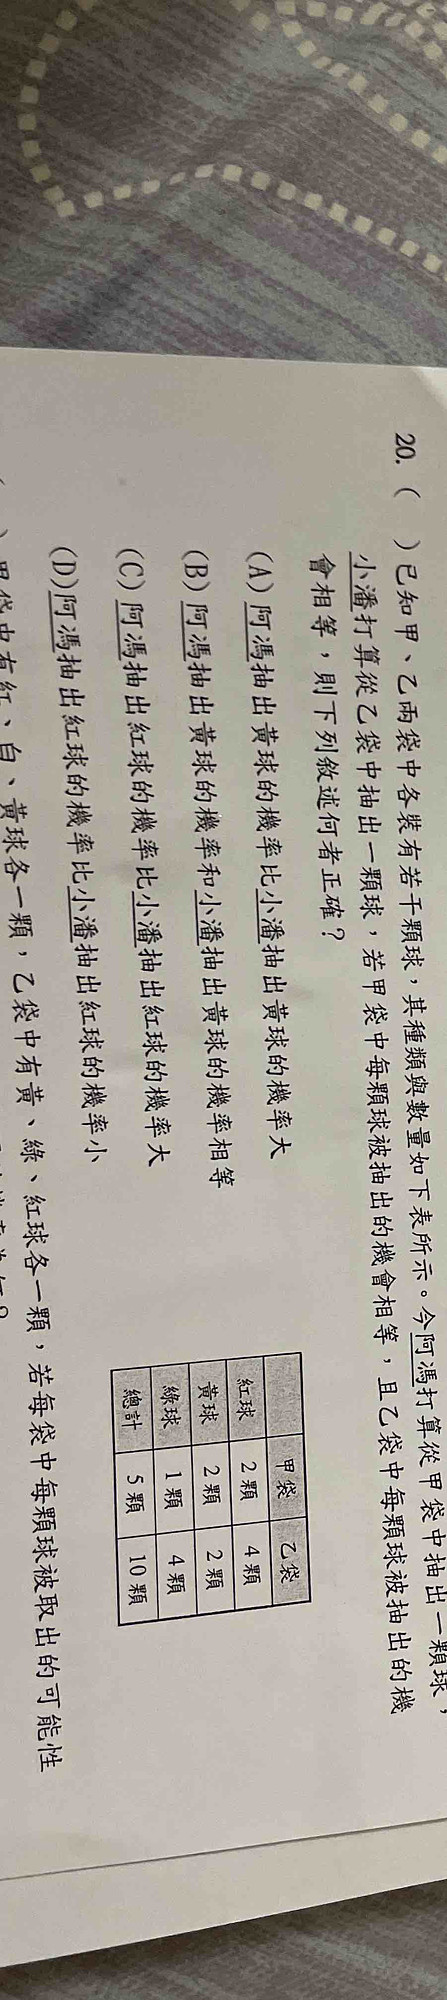 20. (　)已知甲、乙兩袋中各裝有若干顆球，其種類與數量如下表所示。今阿馮打算從甲袋中抽出一顆球，
小潘打算從乙袋中抽出一顆球，若甲袋中每顆球被抽出的機會相等，且乙袋中每顆球被抽出的機
會相等，則下列敘述何者正確？
(A)阿馮抽出黃球的機率比小潘抽出黃球的機率大
(B)阿馮抽出黃球的機率和小潘抽出黃球的機率相等
(C)阿馮抽出紅球的機率比小潘抽出紅球的機率大
(D)阿馮抽出紅球的機率比小潘抽出紅球的機率小
甲袋 乙袋
紅球 2顆 4顆
黃球 2顆 2顆
綠球 1顆 4顆
總計 5顆 10顆
)甲袋中有紅、白、黃球各一顆，乙袋中有黃、綠、紅球各一顆，若每袋中每顆球被取出的可能性